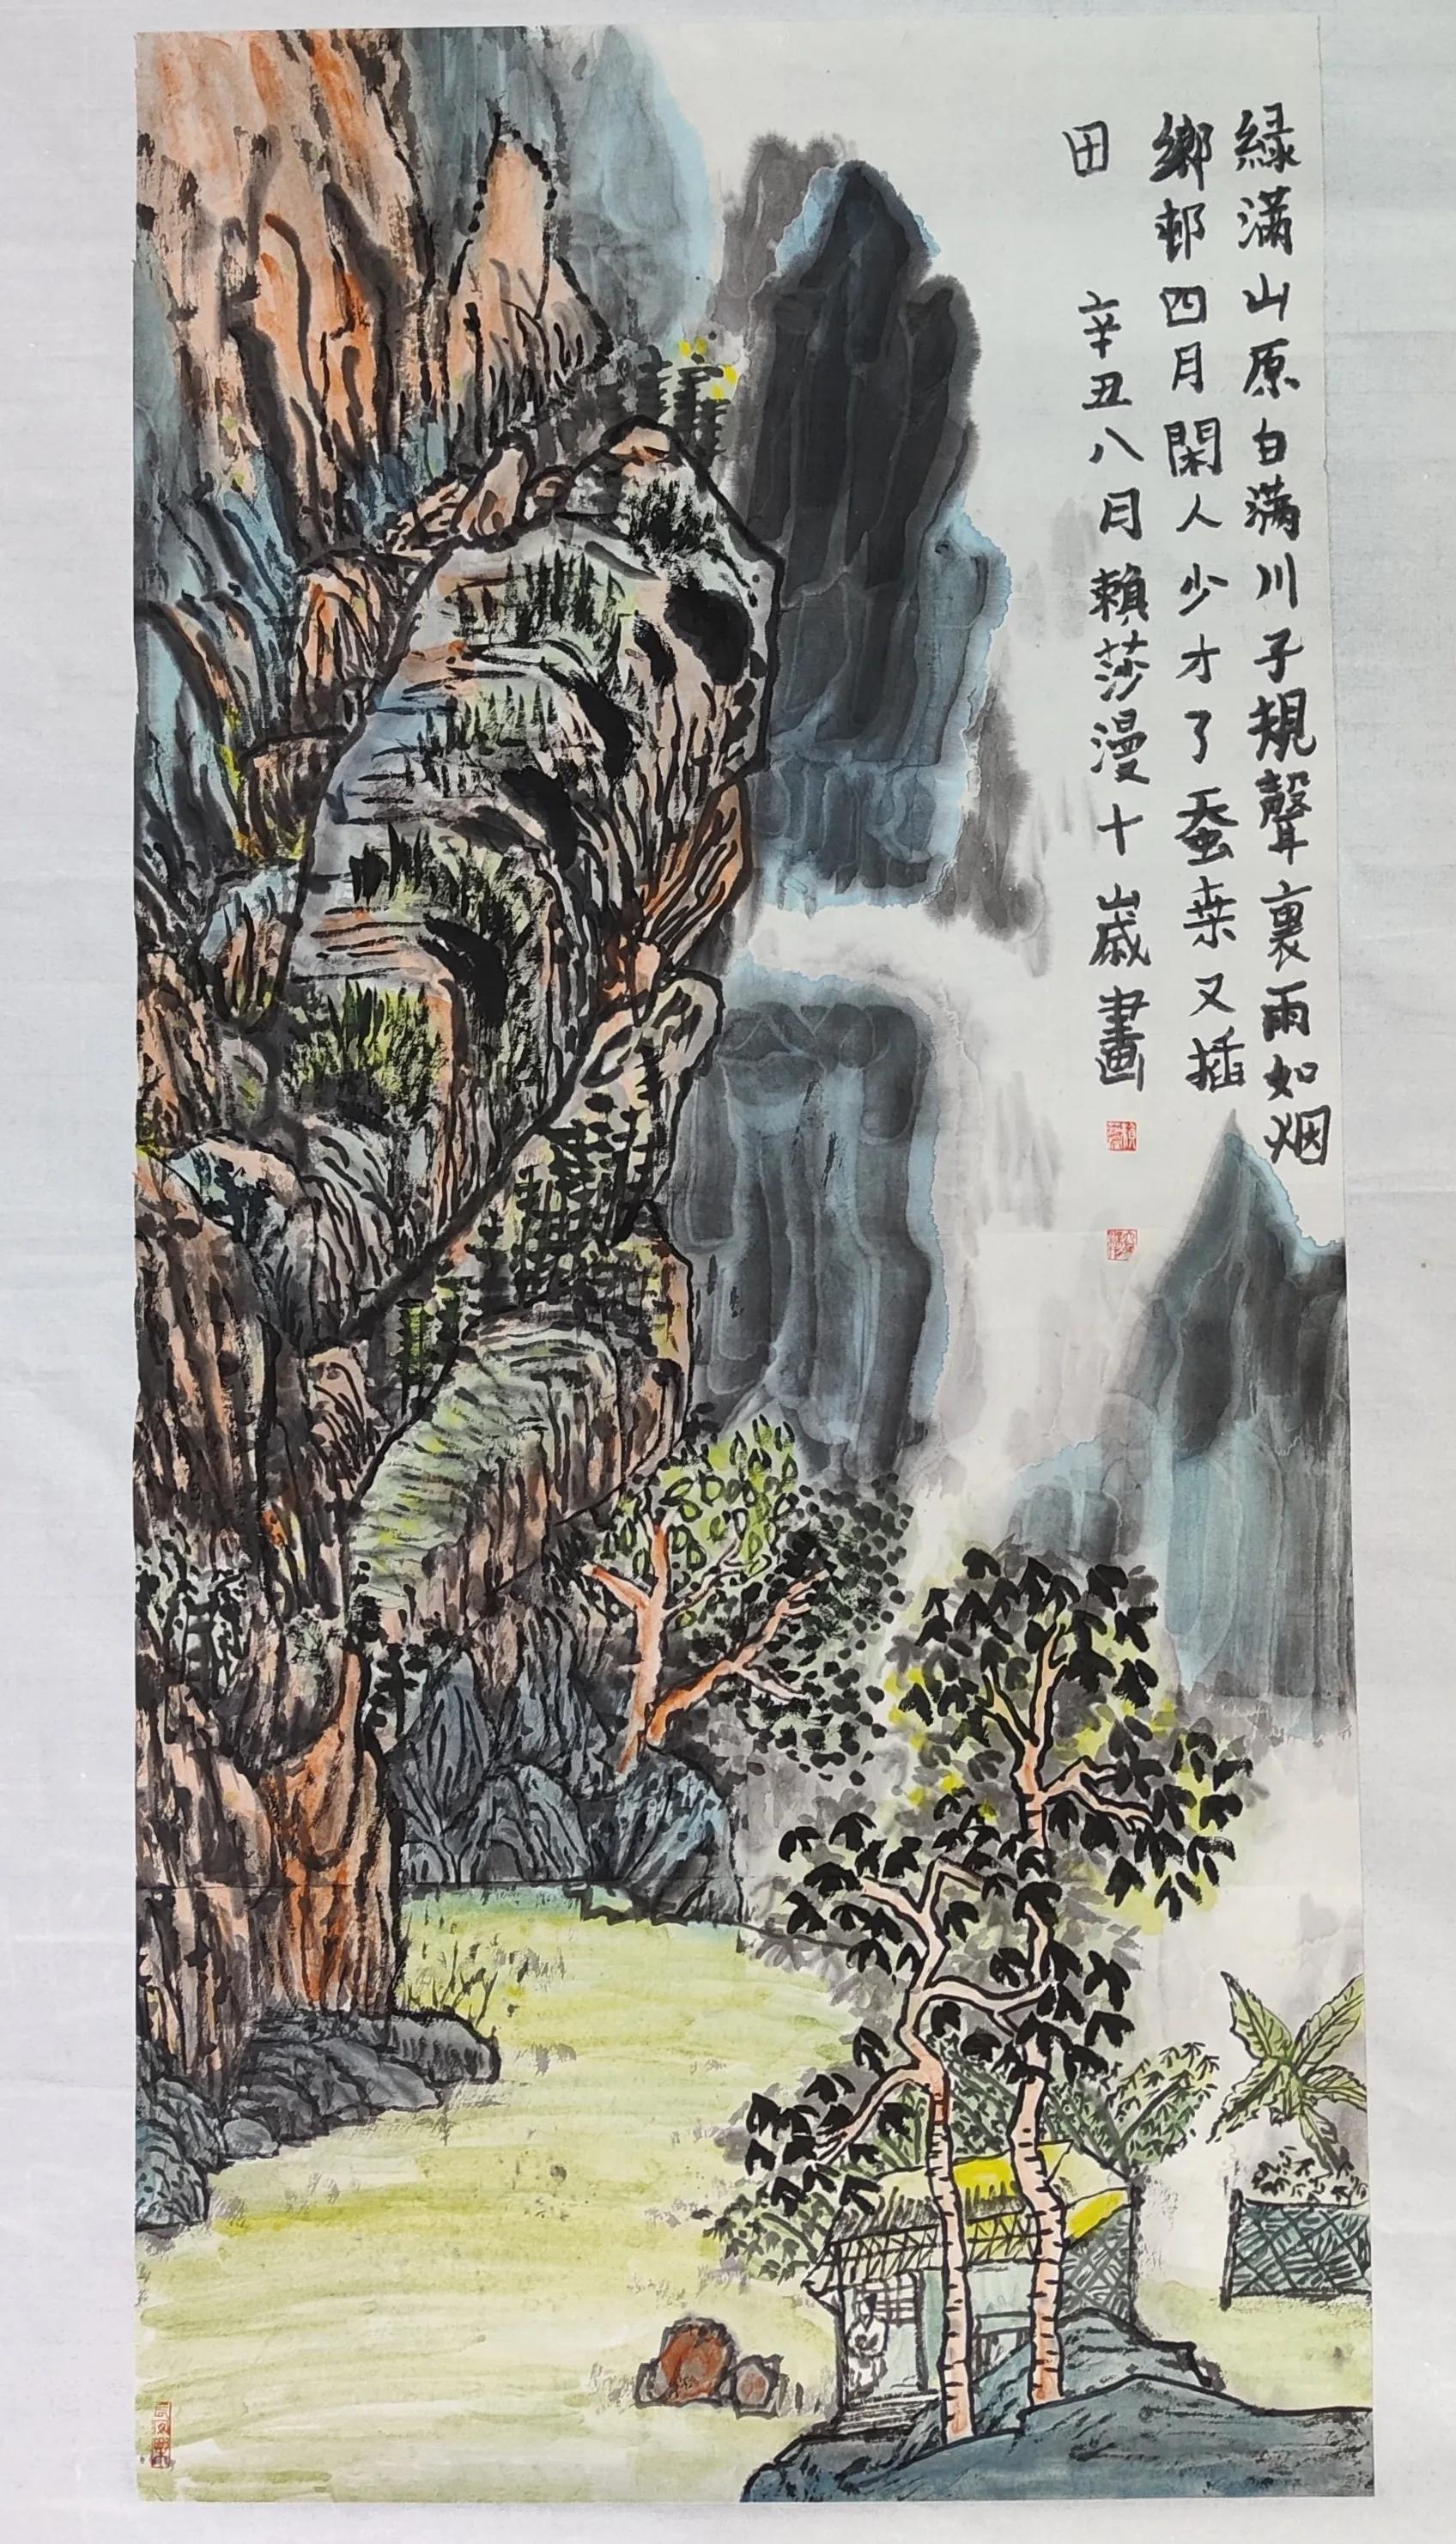 緑滿山原白滿川子規聲裏雨如烟
鄉邨四月閑人少才了蚕桒又插
田
辛丑八月賴莎漫十歲畫